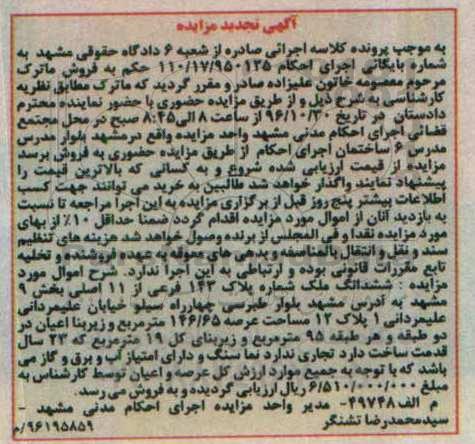 آگهی تجدید مزایده
به موجب پرونده کلاسه اجرائی صادره از شعبه ۶ دادگاه حقوقی مشهد به
شماره بایگانی اجرای احکام ۱۱۰/۱۷/۹۵۰۱۳۵ حکم به فروش ماترک
مرحوم معصومه خاتون علیزاده صادر و مقرر گردید که ماترک مطابق نظریه
کارشناسی به شرح ذیل و از طریق مزایده حضوری با حضور نماینده محترم
دادستان در تاریخ ۹۶/۱۰/۳۰ از ساعت ۸ الی ۸:۴۵ صبح در محل مجتمع
قضائی اجرای احکام مدنی مشهد واحد مزایده واقع درمشهد بلوار مدرس
مدرس ۶ ساختمان اجرای احکام از طریق مزایده حضوری به فروش برسد
مزایده از قیمت ارزیابی شده شروع و به کسانی که بالاترین قیمت را
پیشنهاد نمایند واگذار خواهد شد طالبین به خرید می توانند جهت کسب
اطلاعات بیشتر پنج روز قبل از برگزاری مزایده به این اجرا مراجعه تا نسبت
به بازدید آنان از اموال مورد مزایده اقدام گردد ضمنا حداقل ۱۰٪ از بهای
مورد مزایده نقدا و فی المجلس از برنده وصول خواهد شد هزینه های تنظیم
سند و نقل و انتقال بالمناصفه و بدهی های معوقه به عهده فروشنده و تخلیه
تابع مقررات قانونی بوده و ارتباطی به این اجرا ندارد. شرح اموال مورد
مزایده : ششدانگ ملک شماره پلاک ۱۴۳ فرعی از ۱۱ اصلی بخش ۹
مشهد به آدرس مشهد بلوار طبرسی چهارراه سیلو خیابان علیمردانی
علیمردانی ۱ پلاک ۱۲ مساحت عرصه ۱۴۶/۶۵ مترمربع و زیربنا اعیان در
دو طبقه و هر طبقه ۹۵ مترمربع و زیربنای کل ۱۹ مترمربع که ۲۳ سال
قدمت ساخت دارد تجاری ندارد نما سنگ و دارای امتیاز آب و برق و گاز می
باشد که با توجه به جمیع موارد ارزش کل عرصه و اعیان توسط کارشناس به
مبلغ ۶/۵۱۰/۰۰۰/۰۰۰ ریال ارزیابی گردیده و به فروش می رسد.
م الف ۴۹۷۴۸- مدیر واحد مزایده اجرای احکام مدنی مشهد -
سیدمحمدرضا تشنگر ۹۶۱۹۵۸۵۹/م